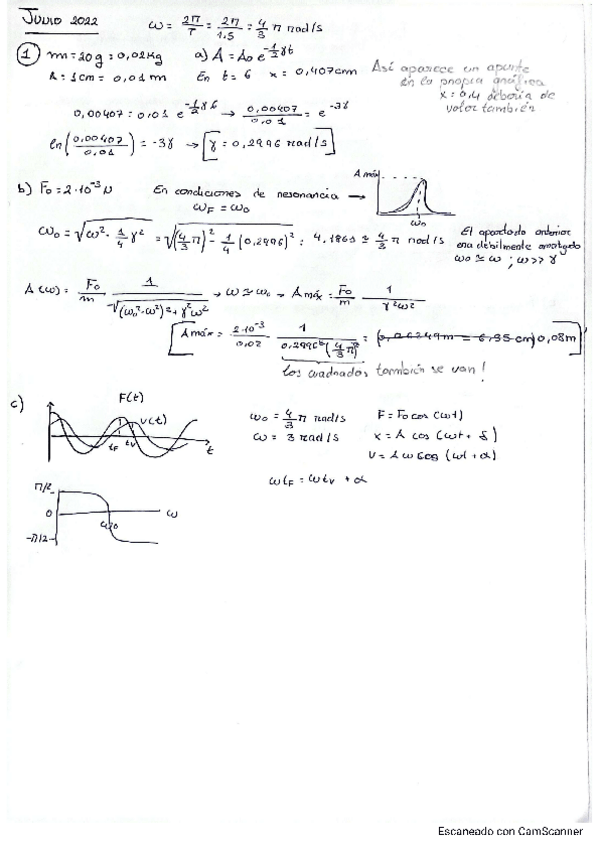 JULIO 2022
ω = 2π/T = 2π/1.5 = 4/3 π rad/s
① m = 20g = 0,02kg a) A = A₀ e^(-1/2 γt)
A = 1cm = 0,01 m En t = 6 x = 0,407cm
Así aparece un apunte
en la propia gráfica
x = 0,4 debería de
valer también
0,00407 = 0,01 e^(-1/2 γ6) → 0,00407/0,01 = e^(-3γ)
ln(0,00407/0,01) = -3γ → [γ = 0,2996 rad/s]
b) F₀ = 2·10⁻³ N En condiciones de resonancia →
ω_F = ω₀
A máx
ω₀
ω₀ = √(ω² · 1/4 γ²) = √((4/3 π)² - 1/4 (0,2996)²) = 4,1863 ≈ 4/3 π rad/s
El apartado anterior
era débilmente amortiguado
ω₀ ≈ ω ; ω >> γ
A(ω) = F₀/m 1/√((ω₀²-ω²)² + γ²ω²) → ω ≈ ω₀ → A máx = F₀/m 1/√(γ²ω²)
[A máx = 2·10⁻³/0,02 1/(0,2996² (4/3 π)²) = (0,06249m = 6,35 cm) 0,08m]
los cuadrados también se van!
c)
F(t)
v(t)
t_F t_v t
ω₀ = 4/3 π rad/s F = F₀ cos (ωt)
ω = 3 rad/s x = A cos (ωt + δ)
v = A ω cos (ωt + α)
ωt_F = ωt_v + α
π/2
0 ω
ω₀
-π/2
Escaneado con CamScanner